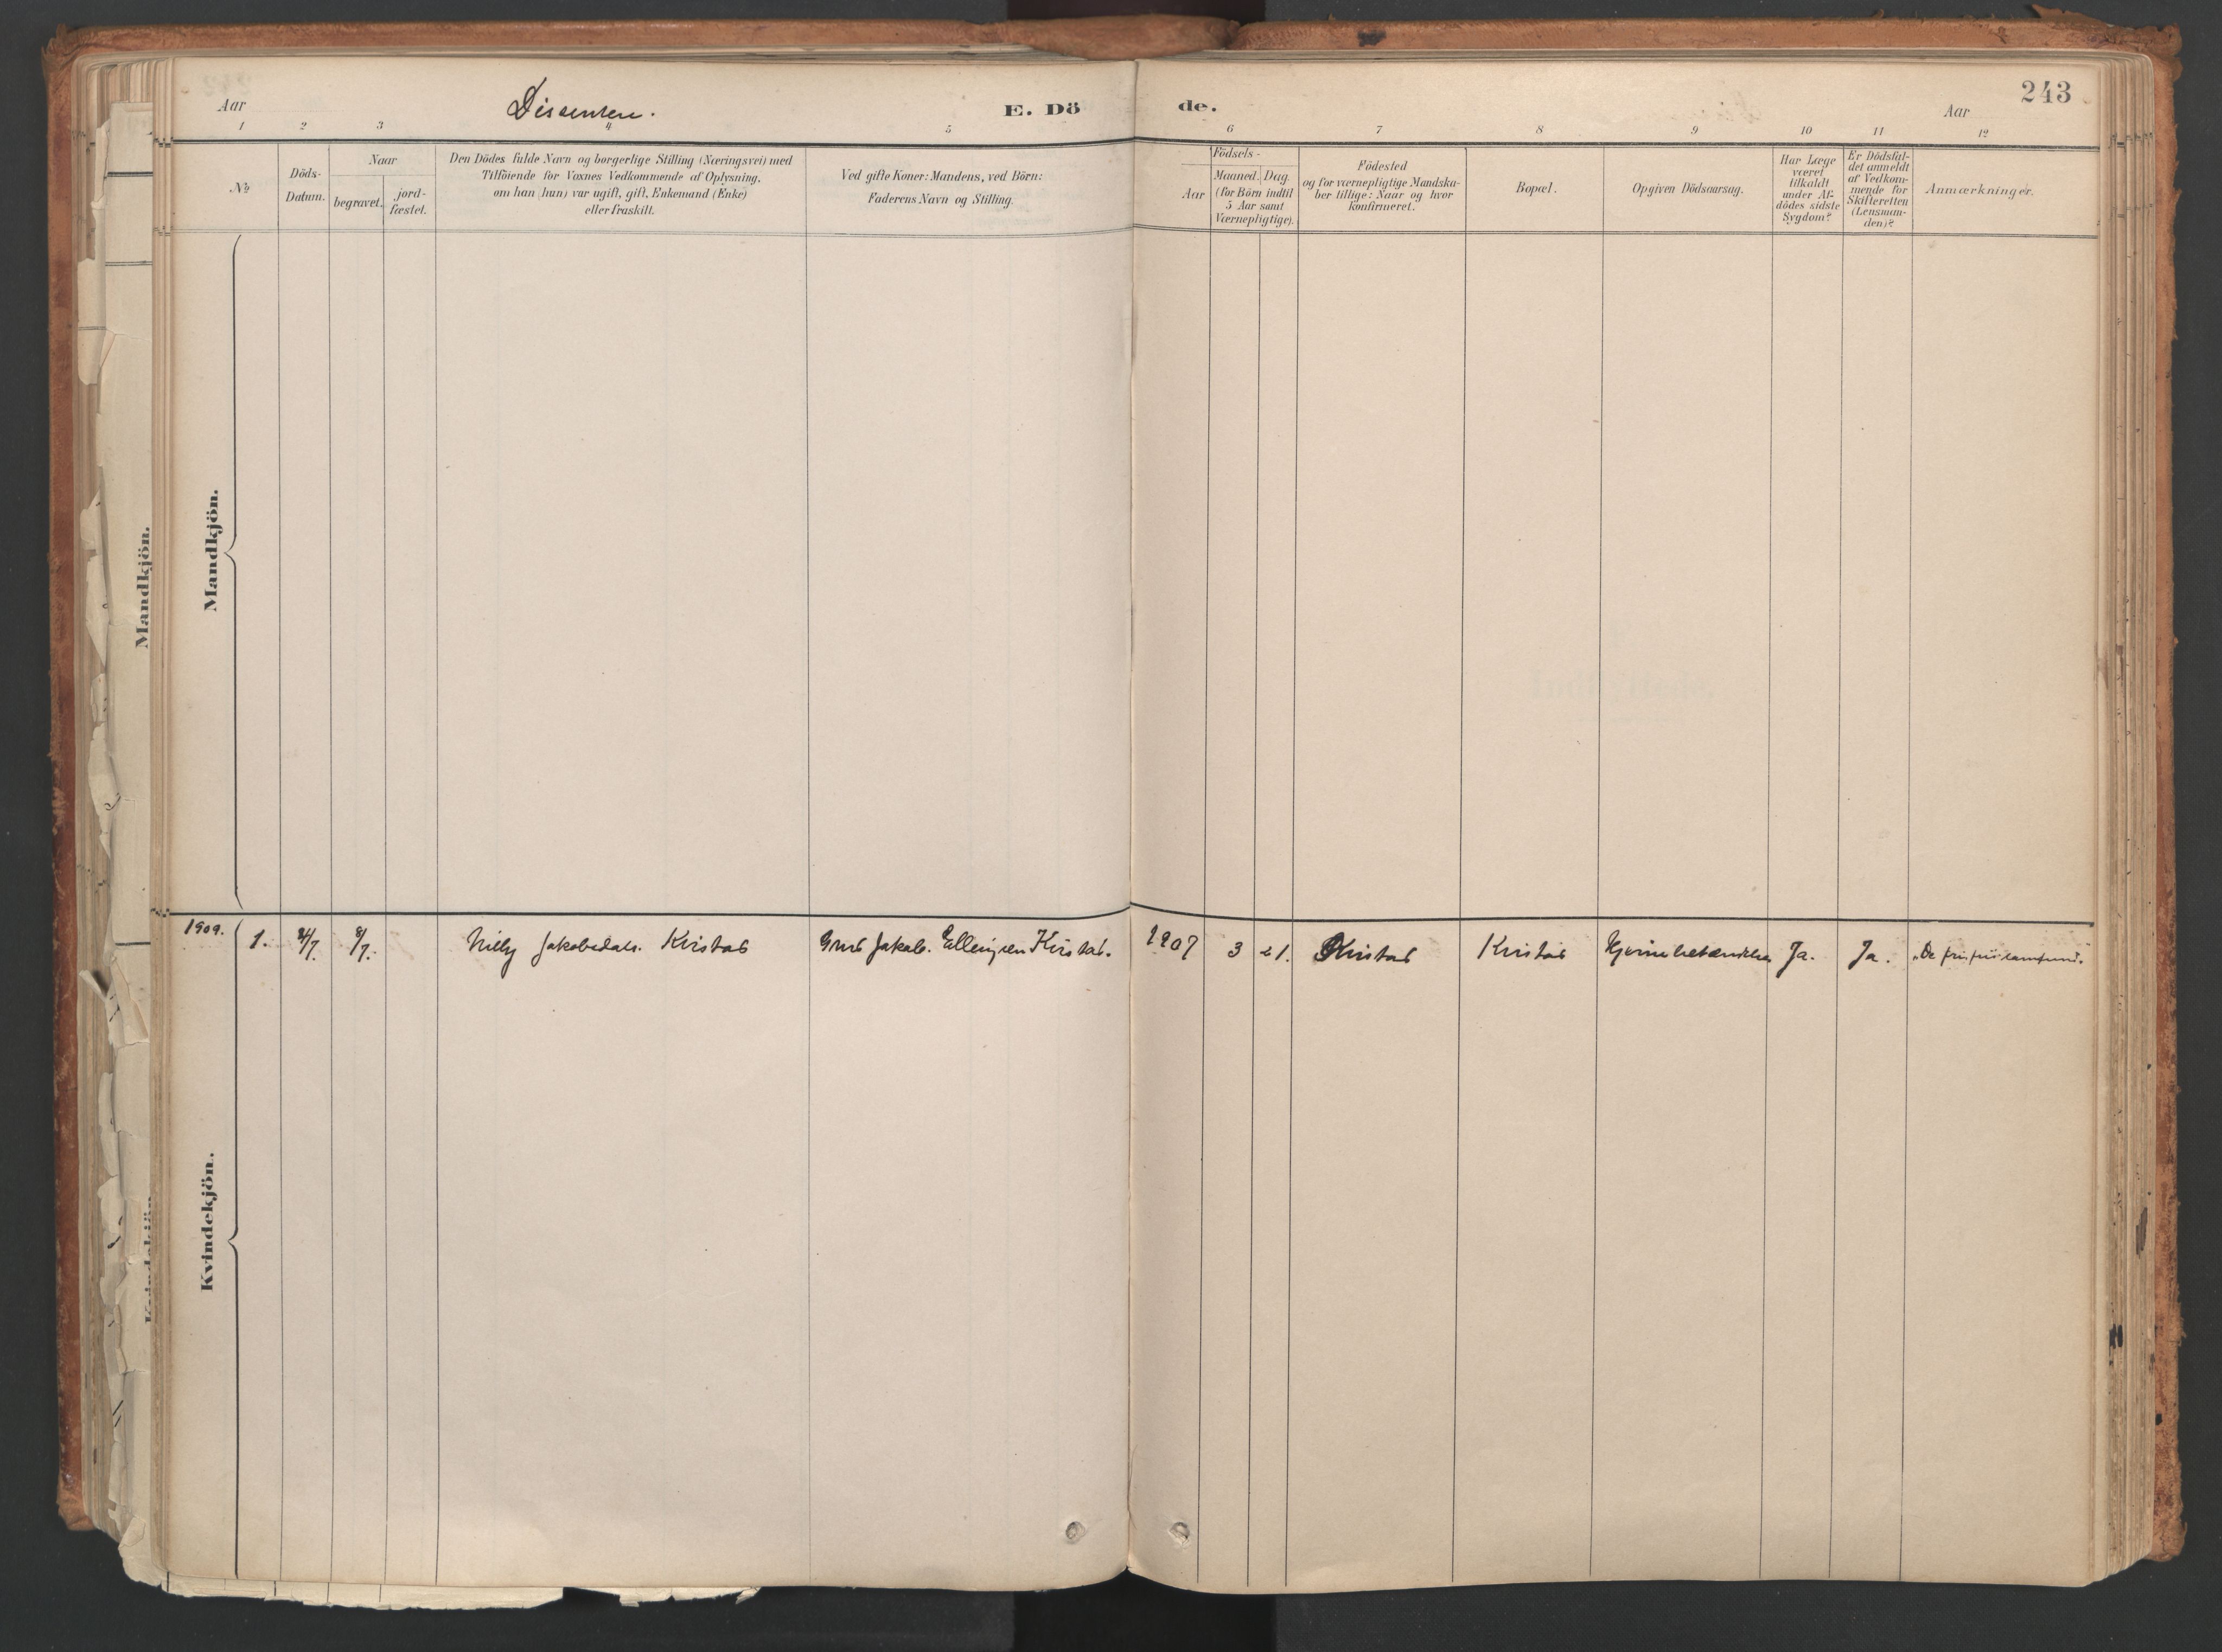 243
Aar
Dissentere.
E. Dö
de.
Aar
1 2 3 4 5 6 7 8 9 10 11 12
No
Döds-
Datum.
Naar
begravet.
jord-
fæstet.
Den Dödes fulde Navn og borgerlige Stilling (Næringsvei) med
Tilföiende for Voxnes Vedkommende af Oplysning,
om han (hun) var ugift, gift, Enkemand (Enke)
eller fraskilt.
Ved gifte Koner: Mandens, ved Börn:
Faderens Navn og Stilling.
Födsels-
Aar
Maaned. Dag.
(for Börn indtil
5 Aar samt
Værnepligtige).
Födested
og for værnepligtige Mandska-
ber tillige: Naar og hvor
konfirmeret.
Bopæl.
Opgiven Dödsaarsag.
Har Læge
været
tilkaldt
under Af-
dödes sidste
Sygdom?
Er Dödsfal-
det anmeldt
af Vedkom-
mende for
Skifteretten
(Lensman-
den)?
Anmærkninger.
Mandkjön.
Mandkjön.
1909.
1. 8/7. Nilly Jakobsdatr. Kvistad Grbr. Jakob. Ellingsen Kvistad. 1907 3 21. Kvistad Kvistad Hjernebetændelse Ja. Ja.
Kvindekjön.